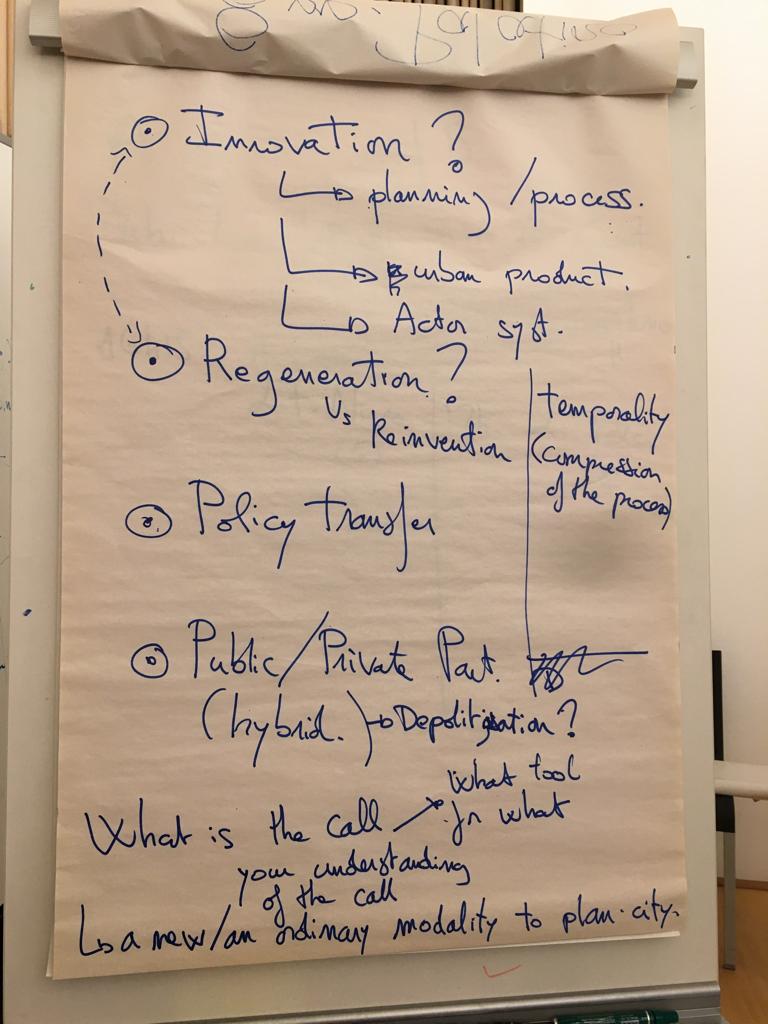 Innovation ?
planning / process.
urban product.
Actor syst.
Regeneration ?
Vs
Reinvention
temporality
(compression
of the process)
Policy transfer
Public/Private Part.
(hybrid.) Depolitisation ?
What tool
What is the call for what
your understanding
of the call
a new/an ordinary modality to plan city.